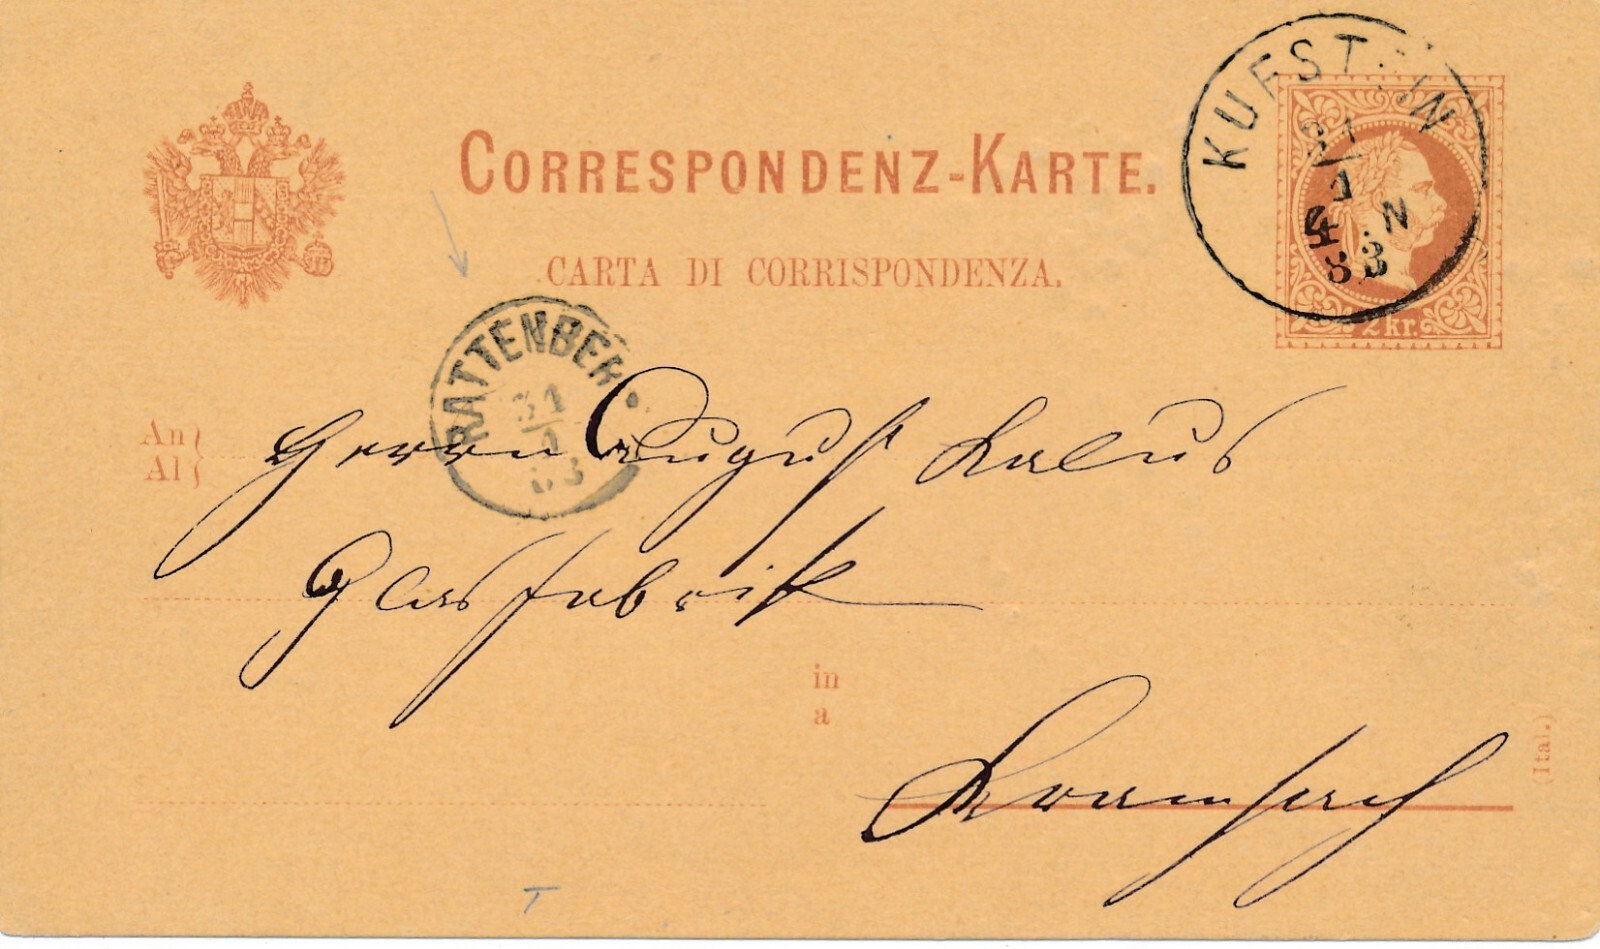 CORRESPONDENZ-KARTE.
CARTA DI CORRISPONDENZA.
KUFSTEIN
31
1
N
83
2 kr.
RATTENBERG
31
1
83
An
Al
Herrn August Kalus
Glasfabrik
in
a
Kramsach
(Ital.)
T